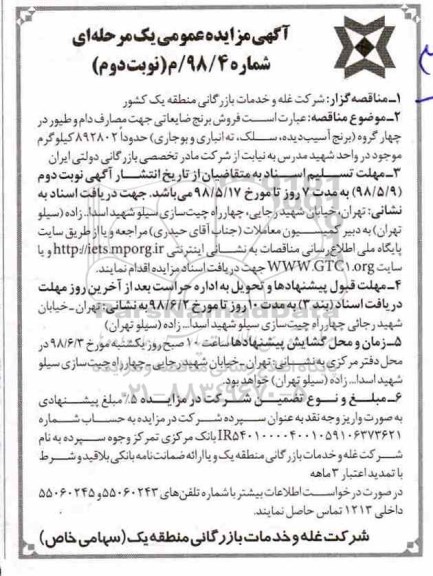 آگهی مزایده عمومی یک مرحله‌ای
شماره ۹۸/۴/م (نوبت دوم)
۱ـ مناقصه گزار: شرکت غله و خدمات بازرگانی منطقه یک کشور
۲ـ موضوع مناقصه: عبارت است فروش برنج ضایعاتی جهت مصارف دام و طیور در
چهار گروه (برنج آسیب‌دیده، سلک، ته انباری و بوجاری) حدوداً ۸۹۲۸۰۲ کیلوگرم
موجود در واحد شهید مدرس به نیابت از شرکت مادر تخصصی بازرگانی دولتی ایران
۳ـ مهلت تسلیم اسناد به متقاضیان از تاریخ انتشار آگهی نوبت دوم
(۹۸/۵/۹) به مدت ۷ روز تا مورخ ۹۸/۵/۱۷ می‌باشد. جهت دریافت اسناد به
نشانی: تهران، خیابان شهید رجایی، چهارراه چیت‌سازی سیلو شهید اسدا.. زاده (سیلو
تهران) به دبیر کمیسیون معاملات (جناب آقای حیدری) مراجعه و یا از طریق سایت
پایگاه ملی اطلاع رسانی مناقصات به نشانی اینترنتی http://iets.mporg.ir و یا
سایت WWW.GTC1.org جهت دریافت اسناد مزایده اقدام نمایند.
۴ـ مهلت قبول پیشنهادها و تحویل به اداره حراست بعد از آخرین روز مهلت
دریافت اسناد (بند ۳) به مدت ۱۰ روز تا مورخ ۹۸/۶/۲ به نشانی: تهران - خیابان
شهید رجائی چهارراه چیت سازی سیلو شهید اسدا... زاده (سیلو تهران)
۵ـ زمان و محل گشایش پیشنهادها ساعت ۱۰ صبح روز یکشنبه مورخ ۹۸/۶/۳ در
محل دفتر مرکزی به نشانی: تهران - خیابان شهید رجایی - چهارراه چیت سازی سیلو
شهید اسدا... زاده (سیلو تهران) خواهد بود.
۶ـ مبلغ و نوع تضمین شرکت در مزایده ۵٪ مبلغ پیشنهادی
به صورت واریز وجه نقد به عنوان سپرده شرکت در مزایده به حساب شماره
IR۵۴۰۱۰۰۰۰۴۰۰۱۰۵۹۱۰۶۳۷۳۶۲۱ بانک مرکزی تمرکز وجوه سپرده به نام
شرکت غله و خدمات بازرگانی منطقه یک و یا ارائه ضمانت نامه بانکی بلاقید و شرط
با تمدید اعتبار ۳ ماهه
در صورت درخواست اطلاعات بیشتر با شماره تلفن‌های ۵۵۰۶۰۲۴۳ و ۵۵۰۶۰۲۴۵
داخلی ۱۲۱۳ تماس حاصل نمایند.
شرکت غله و خدمات بازرگانی منطقه یک (سهامی خاص)